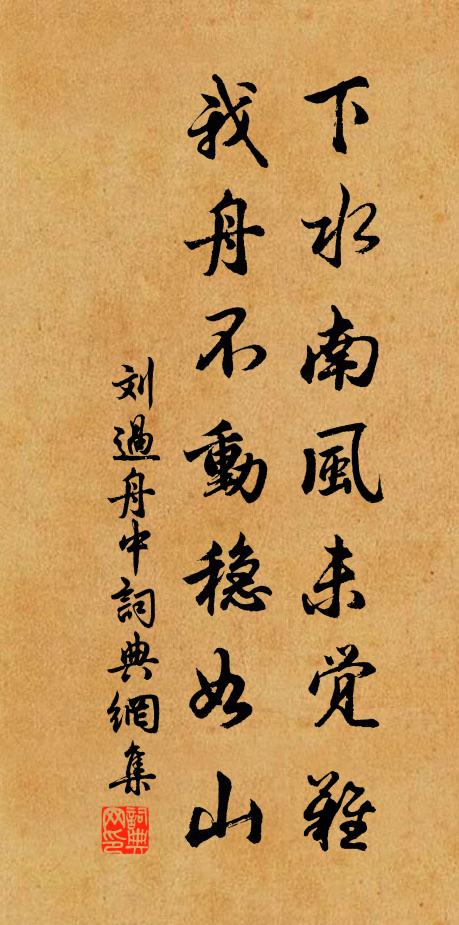 下水南風未觉難
我舟不動穏如山
刘過舟中詞典網集
詞典網印